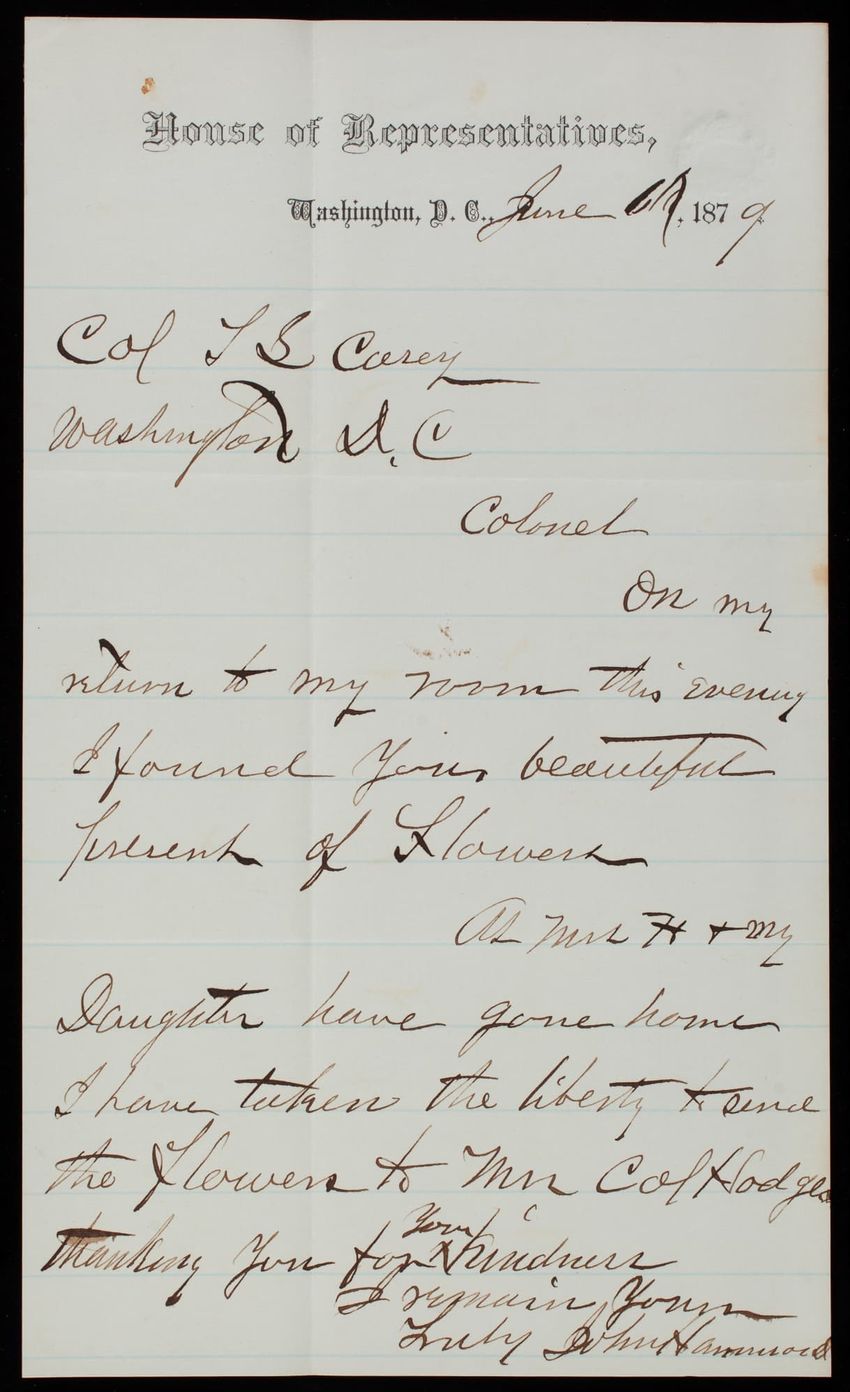 House of Representatives,
Washington, D. C., June 17, 1879
Col T L Casey
Washington D. C
Colonel
On my
return to my room this evening
I found your beautiful
present of Flowers
As Mrs H + my
Daughter have gone home
I have taken the liberty to send
the flowers to Mrs Col Hodges
thanking you for your kindness
I remain yours
Truly John Hammond